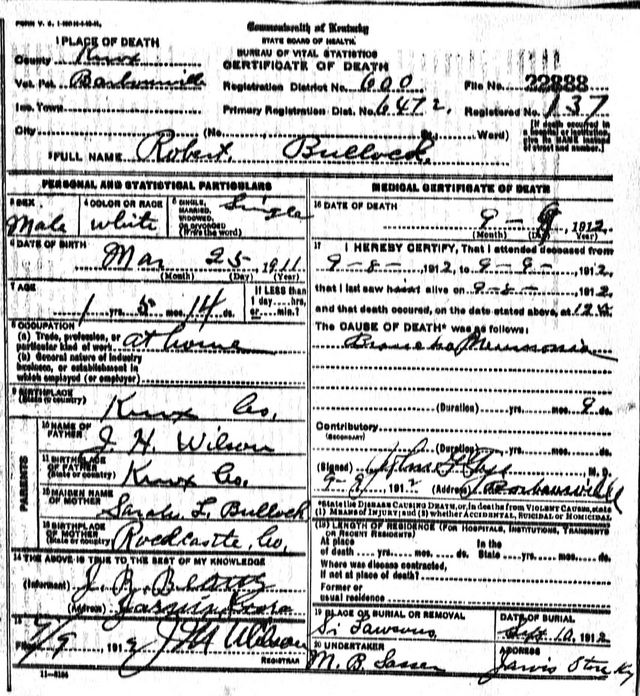 FORM V. S.
Commonwealth of Kentucky
STATE BOARD OF HEALTH.
BUREAU OF VITAL STATISTICS
CERTIFICATE OF DEATH
1 PLACE OF DEATH
County Knox
Vot. Pct. Barbourville
Inc. Town
City (No. Ward)
Registration District No. 600
File No. 22888
Primary Registration Dist. No. 6472.
Registered No. 137
[If death occurred in a hospital or institution, give its NAME instead of street and number.]
2 FULL NAME Robert Bullock.
PERSONAL AND STATISTICAL PARTICULARS
3 SEX Male
4 COLOR OR RACE white
5 SINGLE, MARRIED, WIDOWED, OR DIVORCED (Write the word) Single
6 DATE OF BIRTH
Mar 25, 1911
(Month) (Day) (Year)
7 AGE
1 yrs. 5 mos. 14 ds.
If LESS than 1 day....hrs. or....min.?
8 OCCUPATION
(a) Trade, profession, or particular kind of work at home
(b) General nature of industry business, or establishment in which employed (or employer)
9 BIRTHPLACE
(State or country) Knox Co.
PARENTS
10 NAME OF FATHER J. H. Wilson
11 BIRTHPLACE OF FATHER (State or country) Knox Co.
12 MAIDEN NAME OF MOTHER Sarah L. Bullock
13 BIRTHPLACE OF MOTHER (State or country) Rockcastle, Co.
14 THE ABOVE IS TRUE TO THE BEST OF MY KNOWLEDGE
(Informant) J. B.
(Address)
15
9/9 1912 J M Wilson
REGISTRAR
MEDICAL CERTIFICATE OF DEATH
16 DATE OF DEATH
9 - 9, 1912
(Month) (Day) (Year)
17 I HEREBY CERTIFY, That I attended deceased from
9-8-, 1912, to 9-9-, 1912,
that I last saw alive on 9-8-, 1912,
and that death occured, on the date stated above, at 12
The CAUSE OF DEATH* was as follows:
Broncho Pneumonia
(Duration) yrs. mos. 9 ds.
Contributory
(SECONDARY)
(Duration) yrs. mos. ds.
(Signed) M. D.
9-9, 1912 (Address) Barbourville
*State the DISEASE CAUSING DEATH, or, in deaths from VIOLENT CAUSES, state (1) MEANS OF INJURY; and (2) whether ACCIDENTAL, SUICIDAL OR HOMICIDAL
(18) LENGTH OF RESIDENCE (FOR HOSPITALS, INSTITUTIONS, TRANSIENTS OR RECENT RESIDENTS)
At place of death yrs. mos. ds. In the State yrs. mos. ds.
Where was disease contracted, if not at place of death?
Former or usual residence
19 PLACE OR BURIAL OR REMOVAL
Si Lawsons
DATE OF BURIAL
Sept. 10, 1912
20 UNDERTAKER
M. B. Sasser
ADDRESS
Jarvis Store Ky